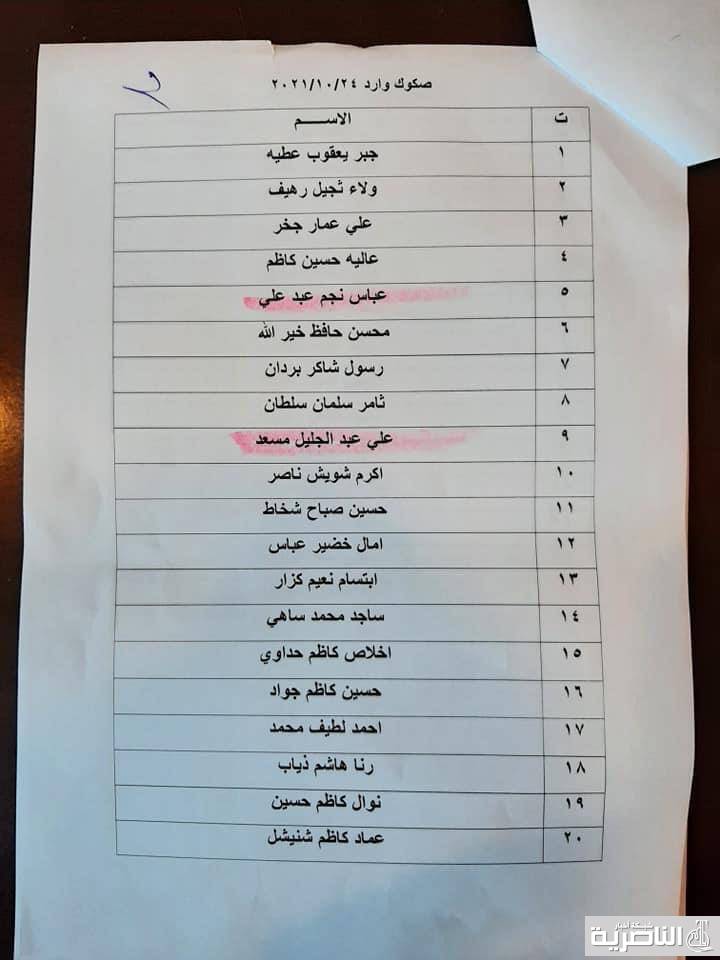 صكوك وارد ٢٠٢١/١٠/٢٤
ت الاســـــم
١ جبر يعقوب عطيه
٢ ولاء ثجيل رهيف
٣ علي عمار جخر
٤ عاليه حسين كاظم
٥ عباس نجم عبد علي
٦ محسن حافظ خير الله
٧ رسول شاكر بردان
٨ ثامر سلمان سلطان
٩ علي عبد الجليل مسعد
١٠ اكرم شويش ناصر
١١ حسين صباح شخاط
١٢ امال خضير عباس
١٣ ابتسام نعيم كزار
١٤ ساجد محمد ساهي
١٥ اخلاص كاظم حداوي
١٦ حسين كاظم جواد
١٧ احمد لطيف محمد
١٨ رنا هاشم ذياب
١٩ نوال كاظم حسين
٢٠ عماد كاظم شنيشل
شبكة اخبار
الناصرية